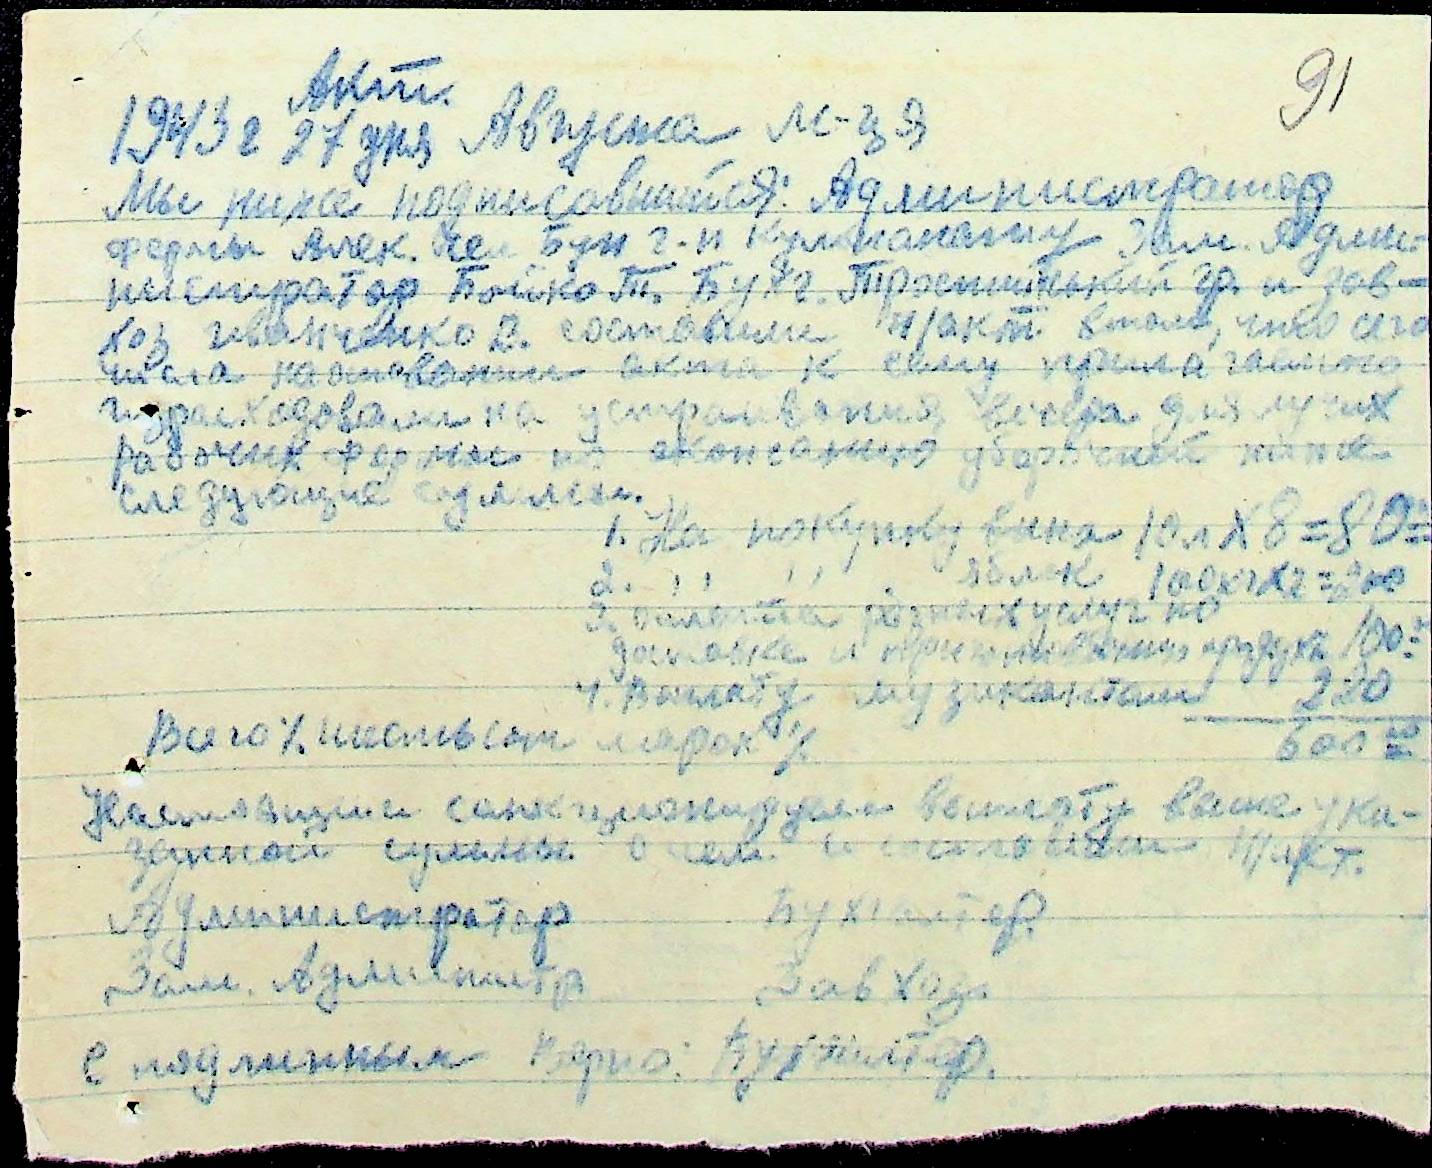 91
Акт.
1943 г 27 дня Августа м-ця
Мы ниже подписавшийся: Администратор
фермы Алек. Бун г-н Зам. Адми-
нистратор Бойко Т. Бухг. гр. и зав-
хоз Иванченко составили н/акт втом, что сего
числа наосновании акта к сему прилагаемого
израсходовали на устраивания вечера для лучих
рабочих фермы по окончанию уборочной
следующие суммы.
1. На покупку вина 10 л Х 8 = 80=
2. ,, ,, яблок 100кгх2=200
3. оплата разных услуг по
доставке и продук 100=
4. Выплату музикантам 220
Всего % шестьсот марок % 600 =
Настоящим санкционируем выплату выше ука-
занной суммы о чем и составили н/акт.
Администратор Бухгалтер
Зам. Администр Завхоз.
С подлинным Верно: Бухгалтер.